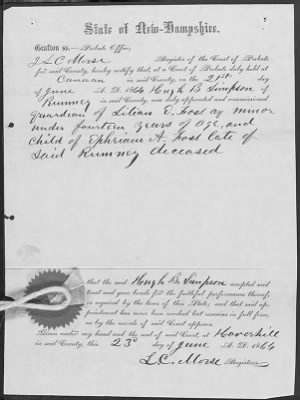 State of New-Hampshire.
Grafton ss.—Probate Office,
I, L C Morse Register of the Court of Probate
for said County, hereby certify that, at a Court of Probate duly held at
Canaan in said County, on the 21st day
of June A. D. 1864 Hugh B Simpson of
Rumney was duly appointed and commissioned
guardian of Lilian E. Foss a minor
under fourteen years of age, and
child of Ephriam A. Foss late of
said Rumney deceased
that the said Hugh B. Simpson accepted said
trust and gave bonds for the faithful performance thereof,
as required by the laws of this State; and that said ap-
pointment has never been revoked but remains in full force,
as by the records of said Court appears.
Given under my hand and the seal of said Court at Haverhill
in said County, this 23d day of June A. D. 1864
L. C. Morse Register.